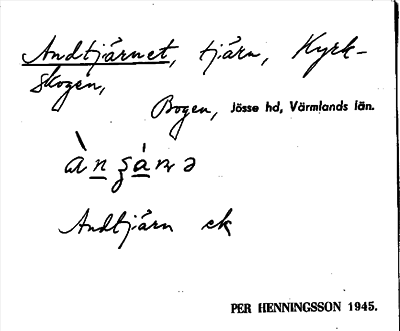 Andtjärnet, tjärn, Kyrk-
skogen,
Bogen, Jösse hd, Värmlands län.
Andtjärn ek
PER HENNINGSSON 1945.